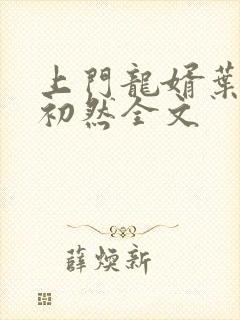 上門龍婿葉
初然全文
薛煥新